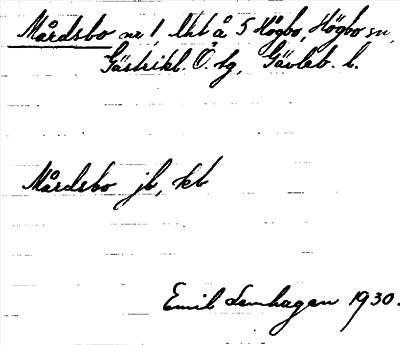 Mårdsbo nr 1, lht å 5 Högbo, Högbo sn,
Gästrikl. Ö. hg, Gävleb. l.
Mårdsbo jb, kb
Emil Lenhagen 1930.